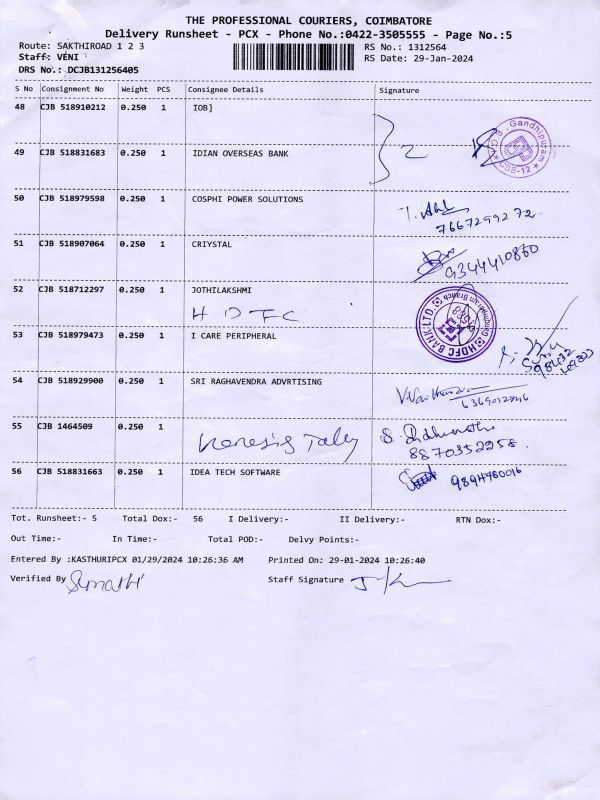 THE PROFESSIONAL COURIERS, COIMBATORE
Delivery Runsheet - PCX - Phone No.:0422-3505555 - Page No.:5
Route: SAKTHIROAD 1 2 3 RS No.: 1312564
Staff: VENI RS Date: 29-Jan-2024
DRS No.: DCJB131256405
S No Consignment No Weight PCS Consignee Details Signature
48 CJB 518910212 0.250 1 IOB]
Gandhipuram
CBE-12
49 CJB 518831683 0.250 1 IDIAN OVERSEAS BANK 2
50 CJB 518979598 0.250 1 COSPHI POWER SOLUTIONS
7667299272
51 CJB 518907064 0.250 1 CRIYSTAL
9344410860
52 CJB 518712297 0.250 1 JOTHILAKSHMI
HDFC
HDFC BANK LTD.
53 CJB 518979473 0.250 1 I CARE PERIPHERAL
54 CJB 518929900 0.250 1 SRI RAGHAVENDRA ADVRTISING
55 CJB 1464509 0.250 1
8870352258
56 CJB 518831663 0.250 1 IDEA TECH SOFTWARE
9894780016
Tot. Runsheet:- 5 Total Dox:- 56 I Delivery:- II Delivery:- RTN Dox:-
Out Time:- In Time:- Total POD:- Delvy Points:-
Entered By :KASTHURIPCX 01/29/2024 10:26:36 AM Printed On: 29-01-2024 10:26:40
Verified By Sumathi Staff Signature